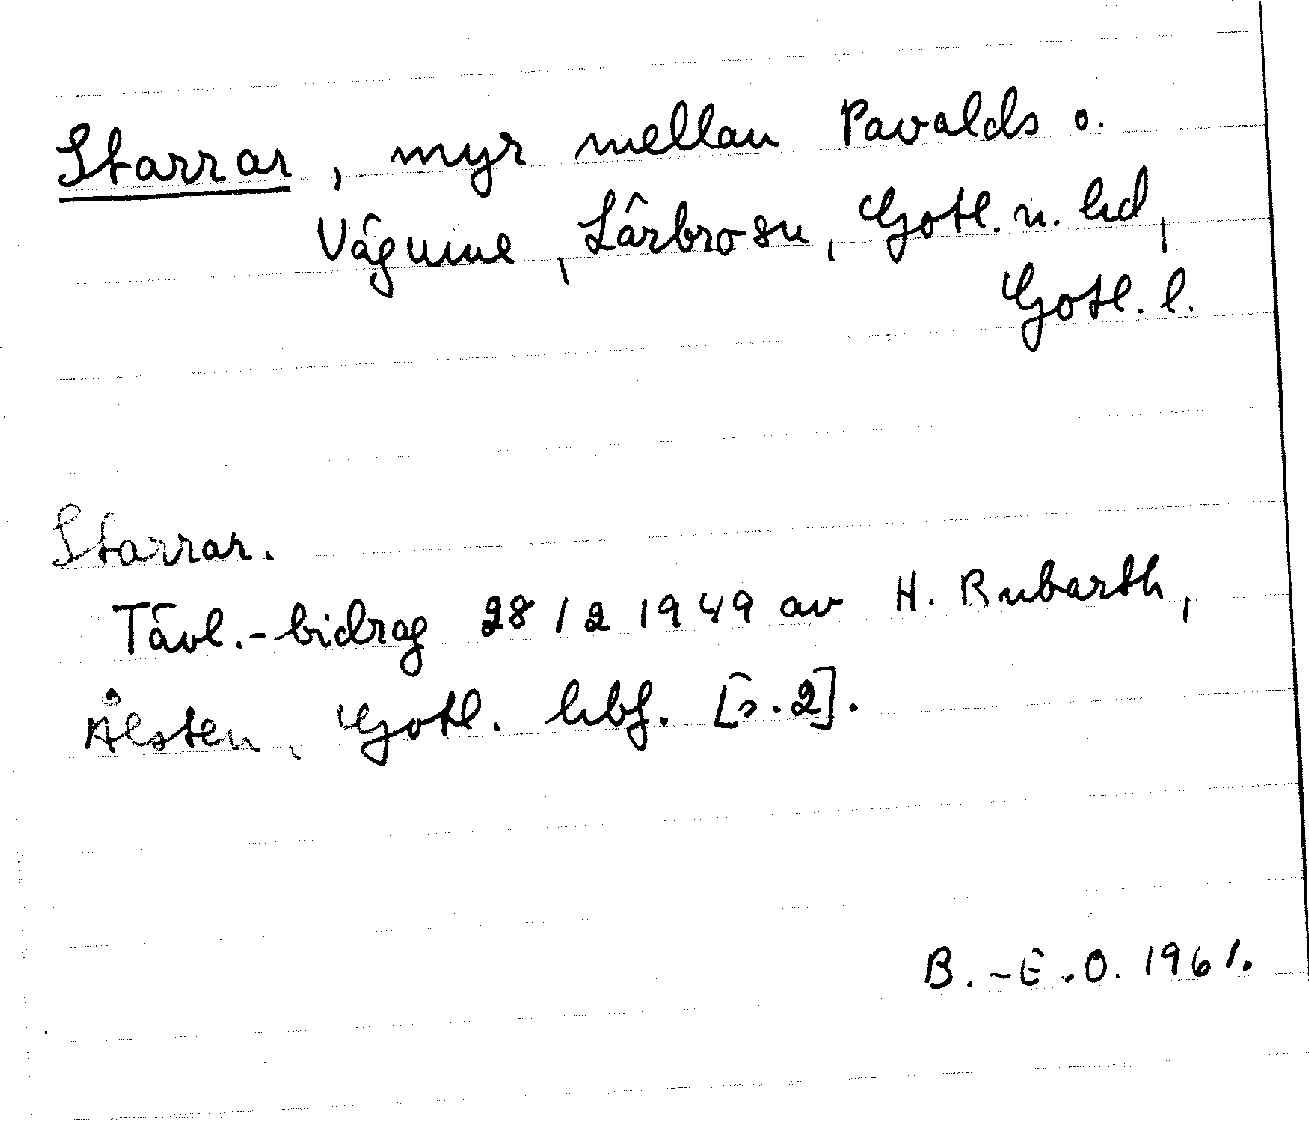 Starrar, myr mellan Pavalds o.
Vägume, Lärbro sn, Gotl. n. hd,
Gotl. l.
Starrar.
Tävl.-bidrag 28/2 1949 av H. Rubarth,
Ålsten, Gotl. hbf. [s.2].
B.-E.O. 1961.